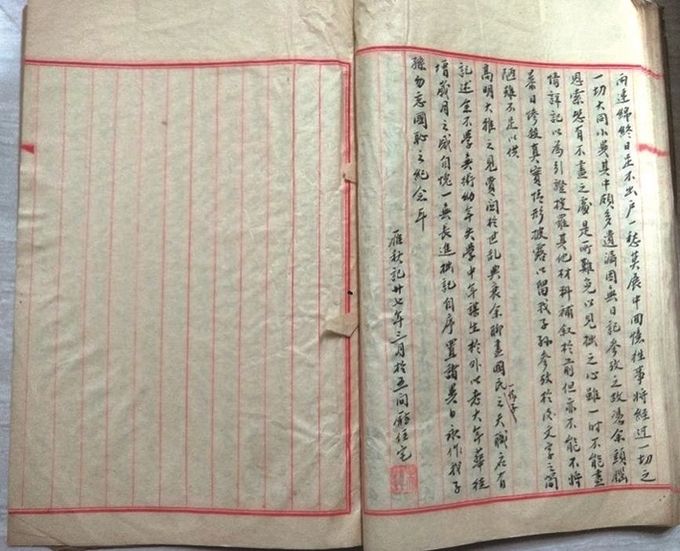 雨連綿終日足不出户一愁莫展中回憶往事将經过一切之
一切大同小異其中頗多遺漏因無日記參攷之故憑余頭腦
思索恐有不盡之處是所難免以見拙之心雖一时不能盡
情詳記以為引證搜羅其他材料補敘於前但亦不能不将
暮日慘殺真實情形披露以留我子孫參攷於後文字之間
陋雖不足以供
高明大雅之見實因於世乱興衰余聊盡國民之天職一份子應有
記述余不學無術幼年失學中年謀生於外以老大年華徒
增歲月之感自愧一無長進拙記自序置諸異日永作我子
孫勿忘國恥之紀念耳
雁秋記廿七年三月於五间廳住宅